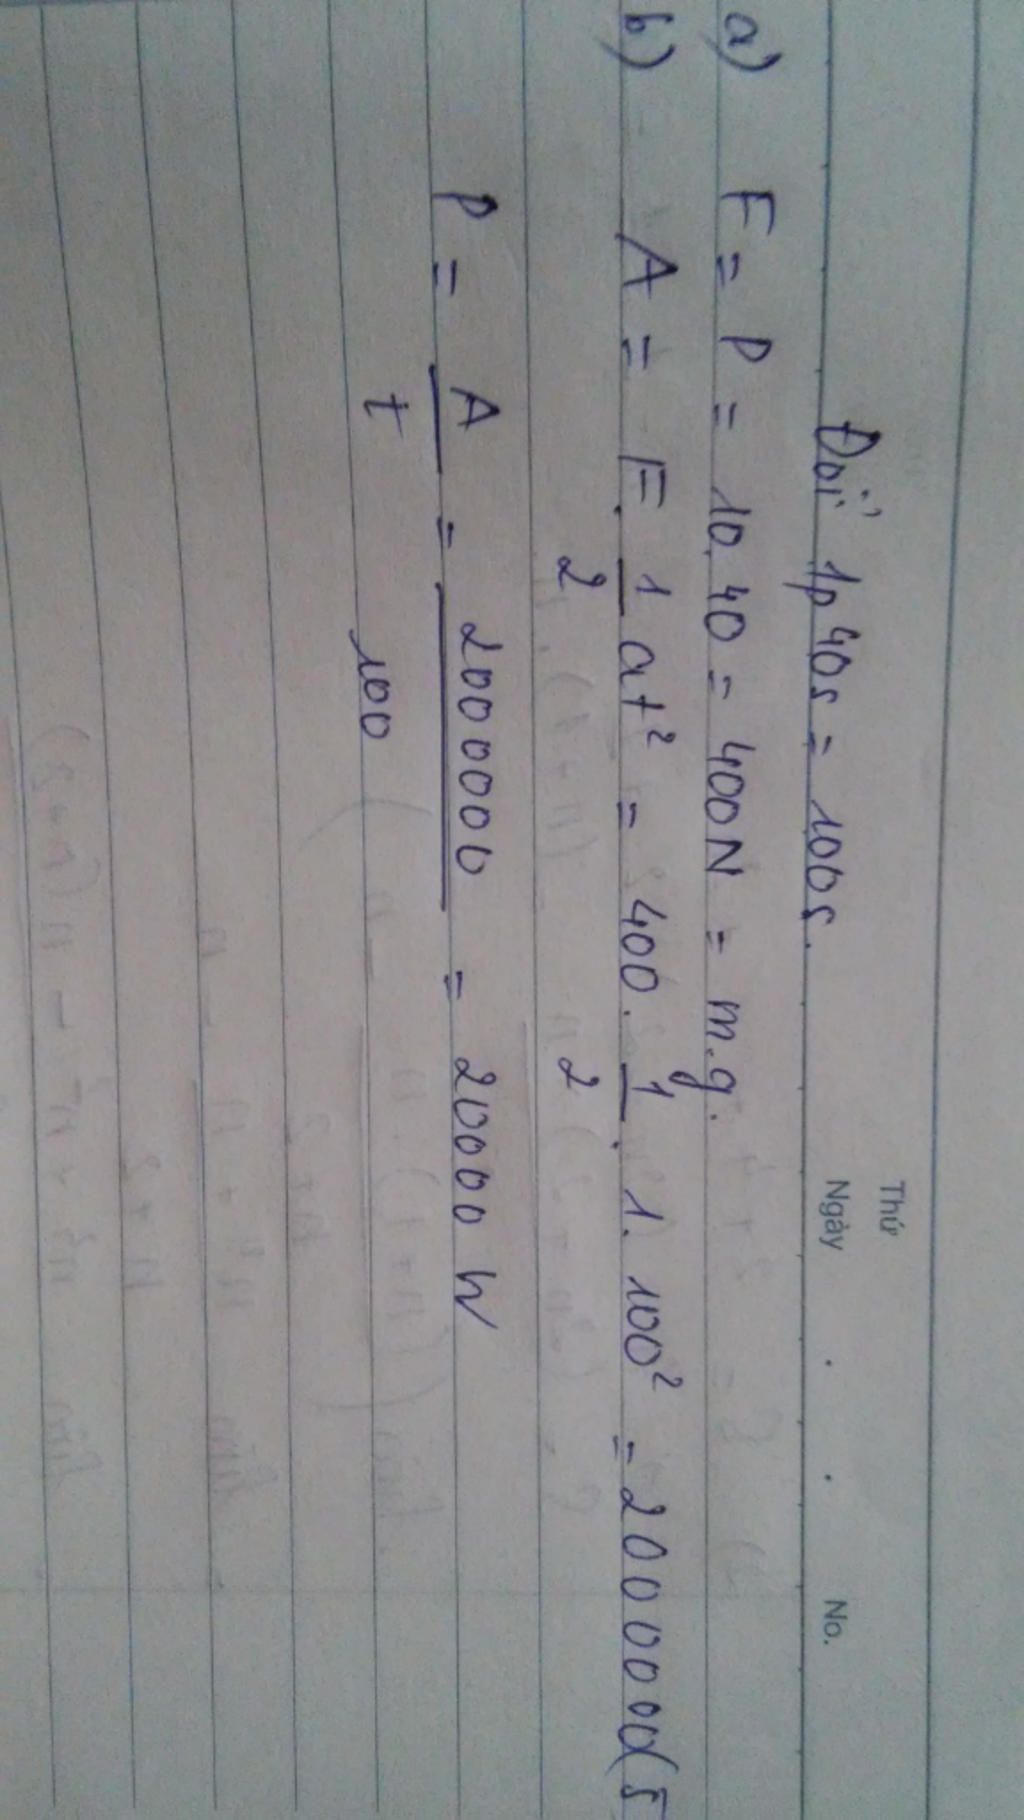 Thứ
Ngày . . No.
Đổi 1p40s = 100s.
a) F = P = 10.40 = 400N = m.g.
b) A = F. 1/2 at² = 400. 1/2 . 1. 100² = 2000000(J
P = A/t = 2000000/100 = 20000 W